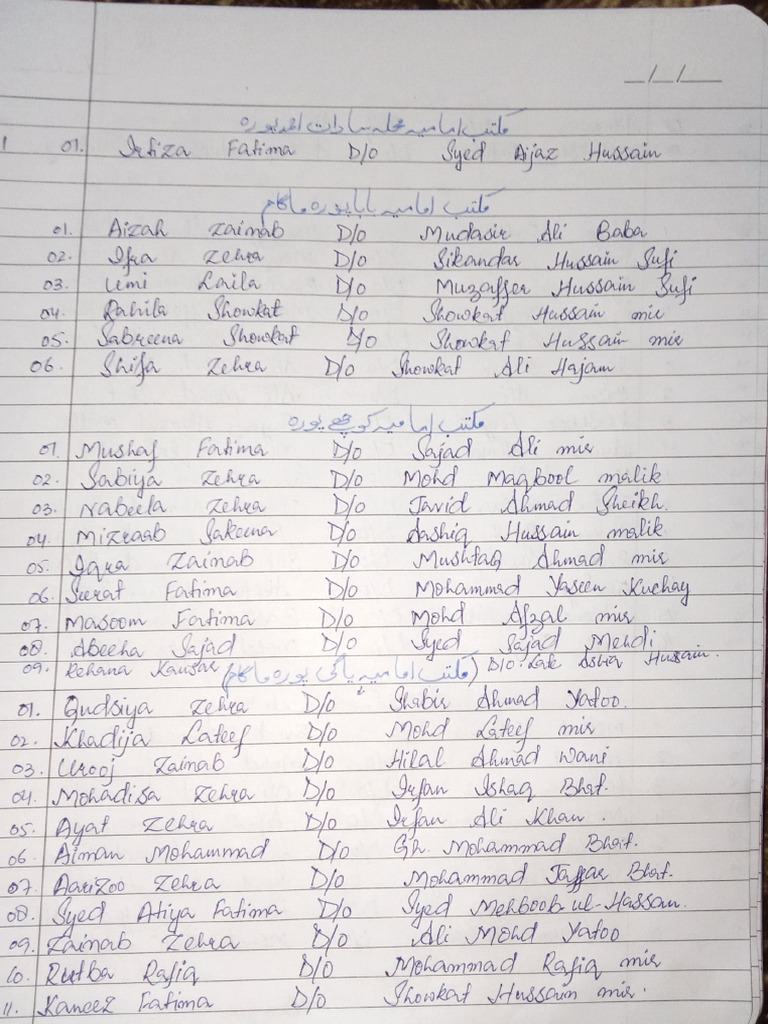 _/_/__
مکتب امامیہ محلہ سادات احمدپورہ
01. Irtiza Fatima D/O Syed Aijaz Hussain
مکتب امامیہ باباپورہ ماگام
01. Aizah Zainab D/O Mudasir Ali Baba
02. Ifra Zehra D/O Sikandar Hussain Sufi
03. Umi Laila D/O Muzaffer Hussain Sufi
04. Rahila Showkat D/O Showkat Hussain mir
05. Sabreena Showkat D/O Showkat Hussain mir
06. Shifa Zehra D/O Showkat Ali Hajam
مکتب امامیہ کوچھے پورہ
01. Mushaf Fatima D/O Sajad Ali mir
02. Sabiya Zehra D/O Mohd Maqbool malik
03. Nabeela Zehra D/O Javid Ahmad Sheikh.
04. Mizraab Sakeena D/O Aashiq Hussain malik
05. Iqra Zainab D/O Mushtaq Ahmad mir
06. Seerat Fatima D/O Mohammad Yaseen Kuchay
07. Masoom Fatima D/O Mohd Afzal mir
08. Abeeha Sajad D/O Syed Sajad Mehdi
09. Rehana Kausar D/O Late Hussain.
(مکتب امامیہ یاگی پورہ ماگام)
01. Qudsiya Zehra D/O Shabir Ahmad Yatoo.
02. Khadija Lateef D/O Mohd Lateef mir
03. Urooj Zainab D/O Hilal Ahmad Wani
04. Mohadisa Zehra D/O Irfan Ishaq Bhat.
05. Ayat Zehra D/O Irfan Ali Khan.
06. Aiman Mohammad D/O Gh. Mohammad Bhat.
07. Aarizoo Zehra D/O Mohammad Jaffar Bhat.
08. Syed Atiya Fatima D/O Syed Mehboob-ul-Hassan.
09. Zainab Zehra D/O Ali Mohd Yatoo
10. Rutba Rafiq D/O Mohammad Rafiq mir
11. Kaneez Fatima D/O Showkat Hussain mir.